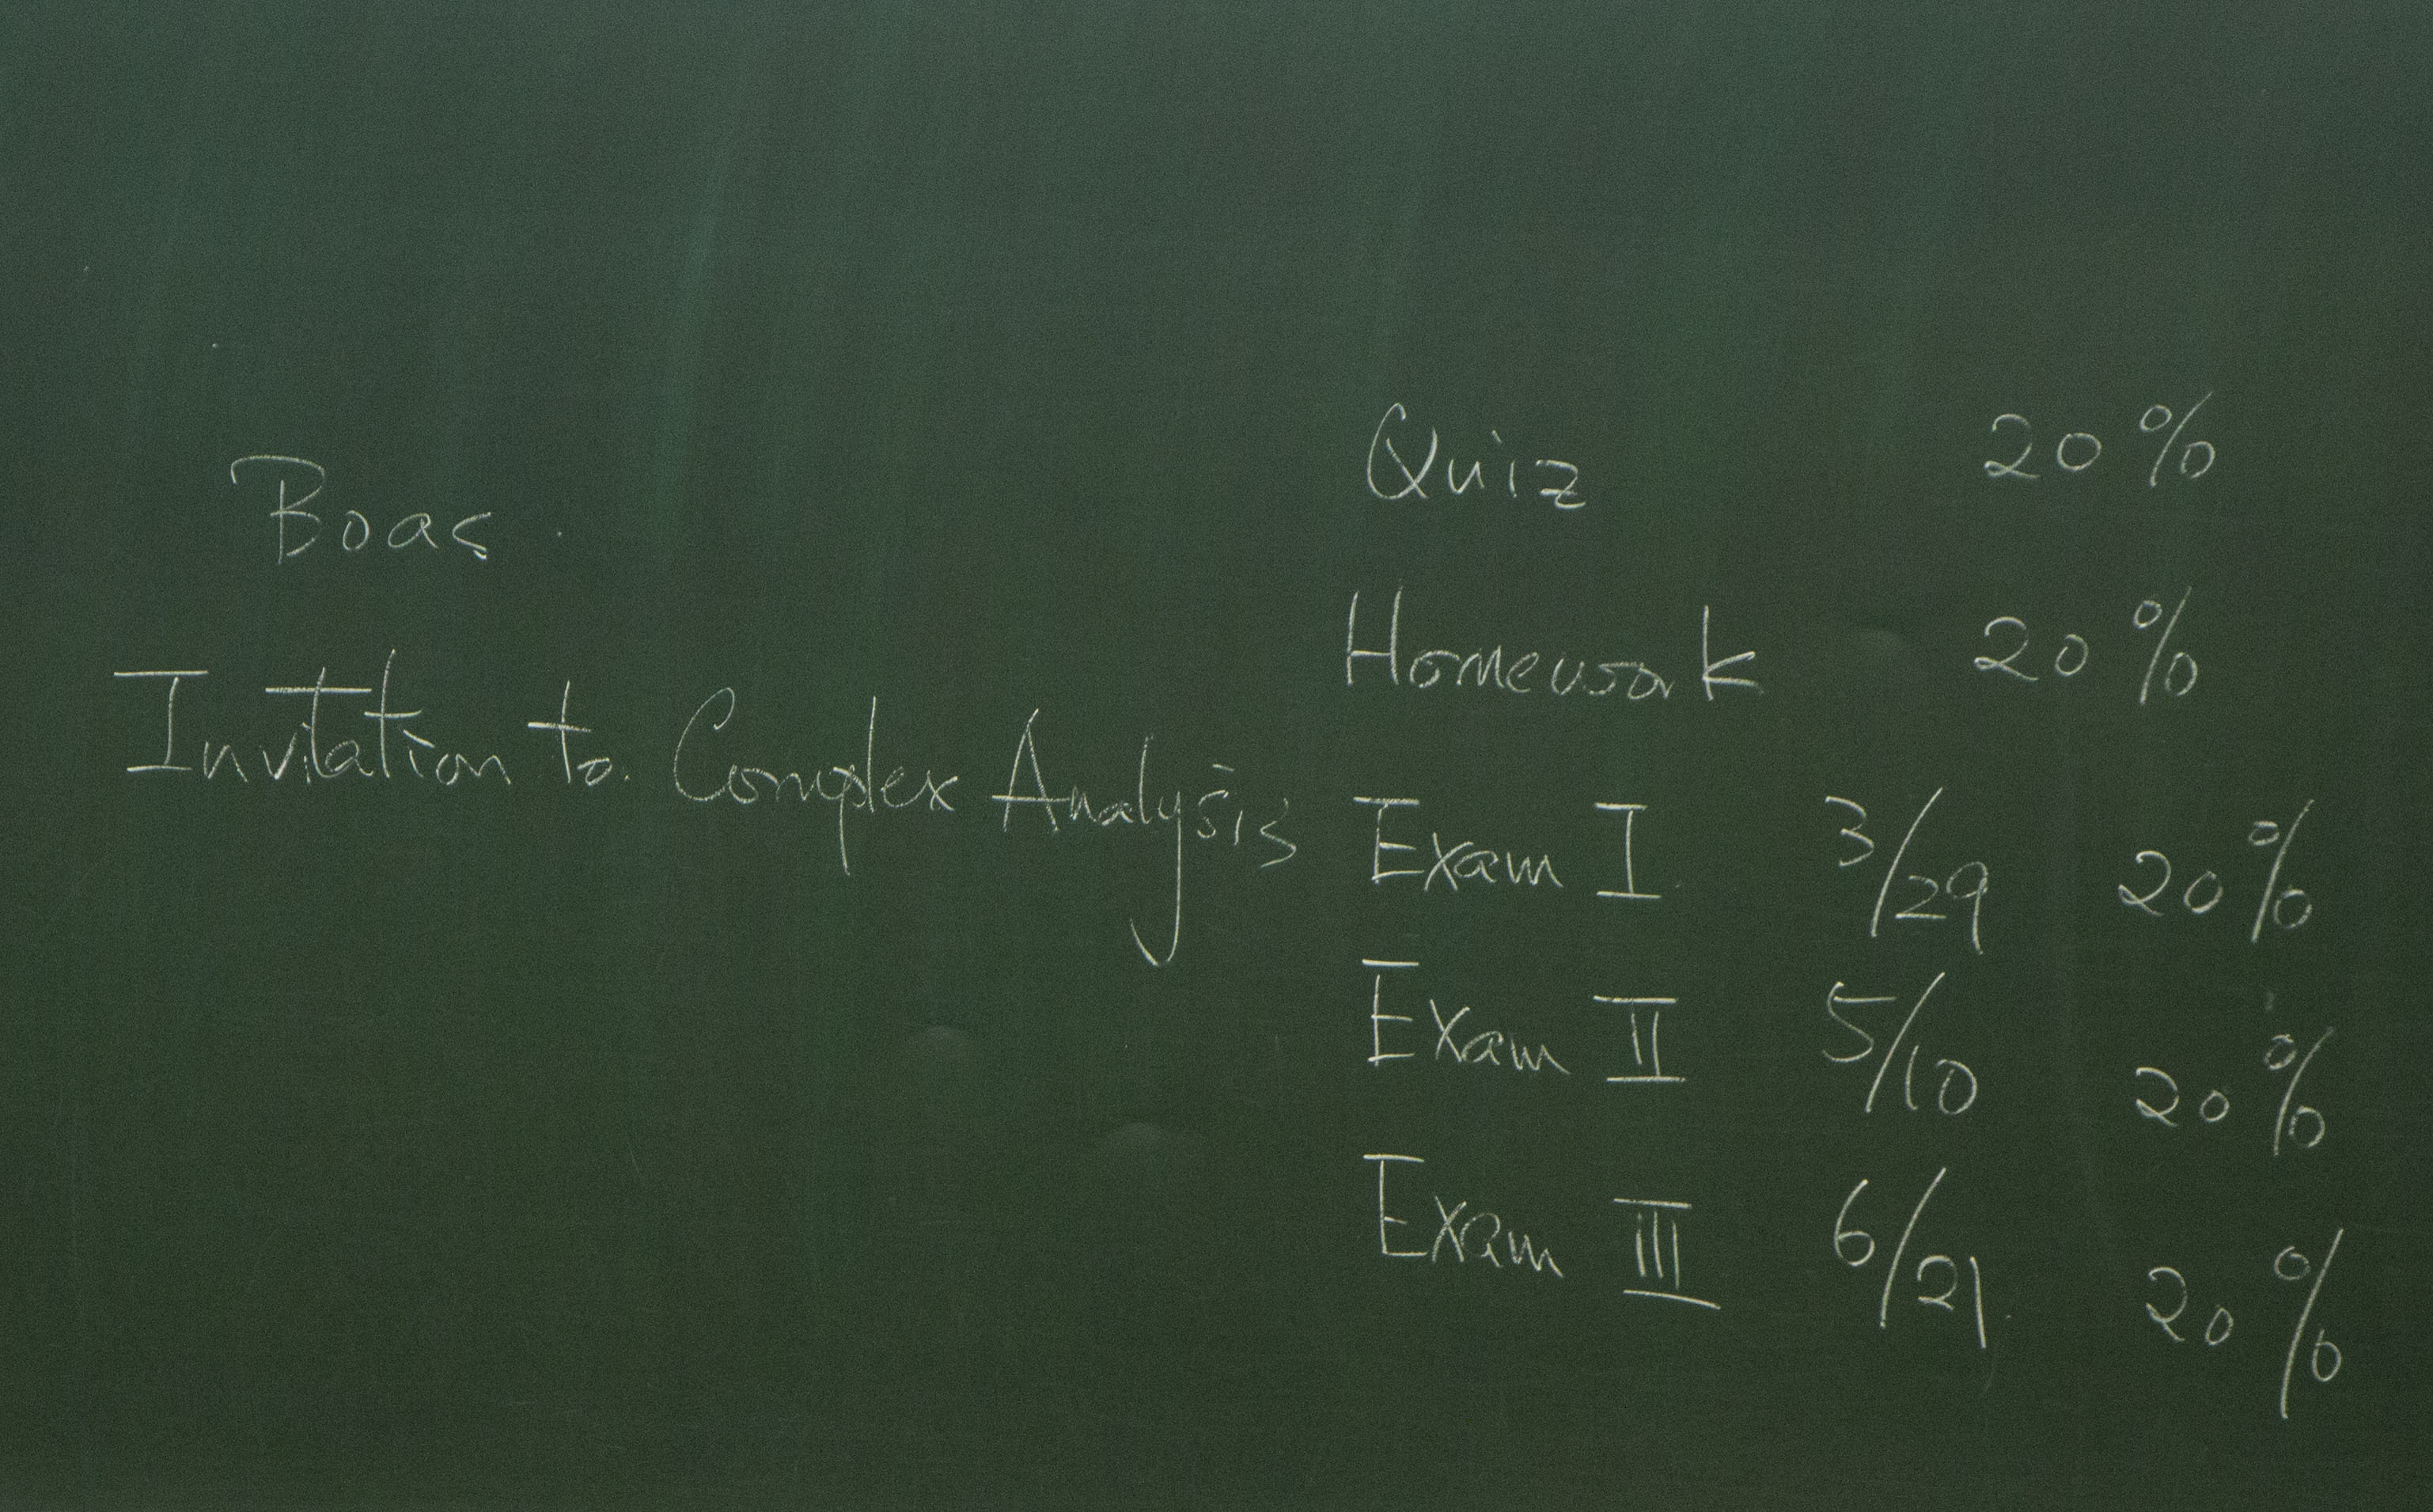 Boas.
Invitation to Complex Analysis
Quiz 20%
Homework 20%
Exam I 3/29 20%
Exam II 5/10 20%
Exam III 6/21 20%